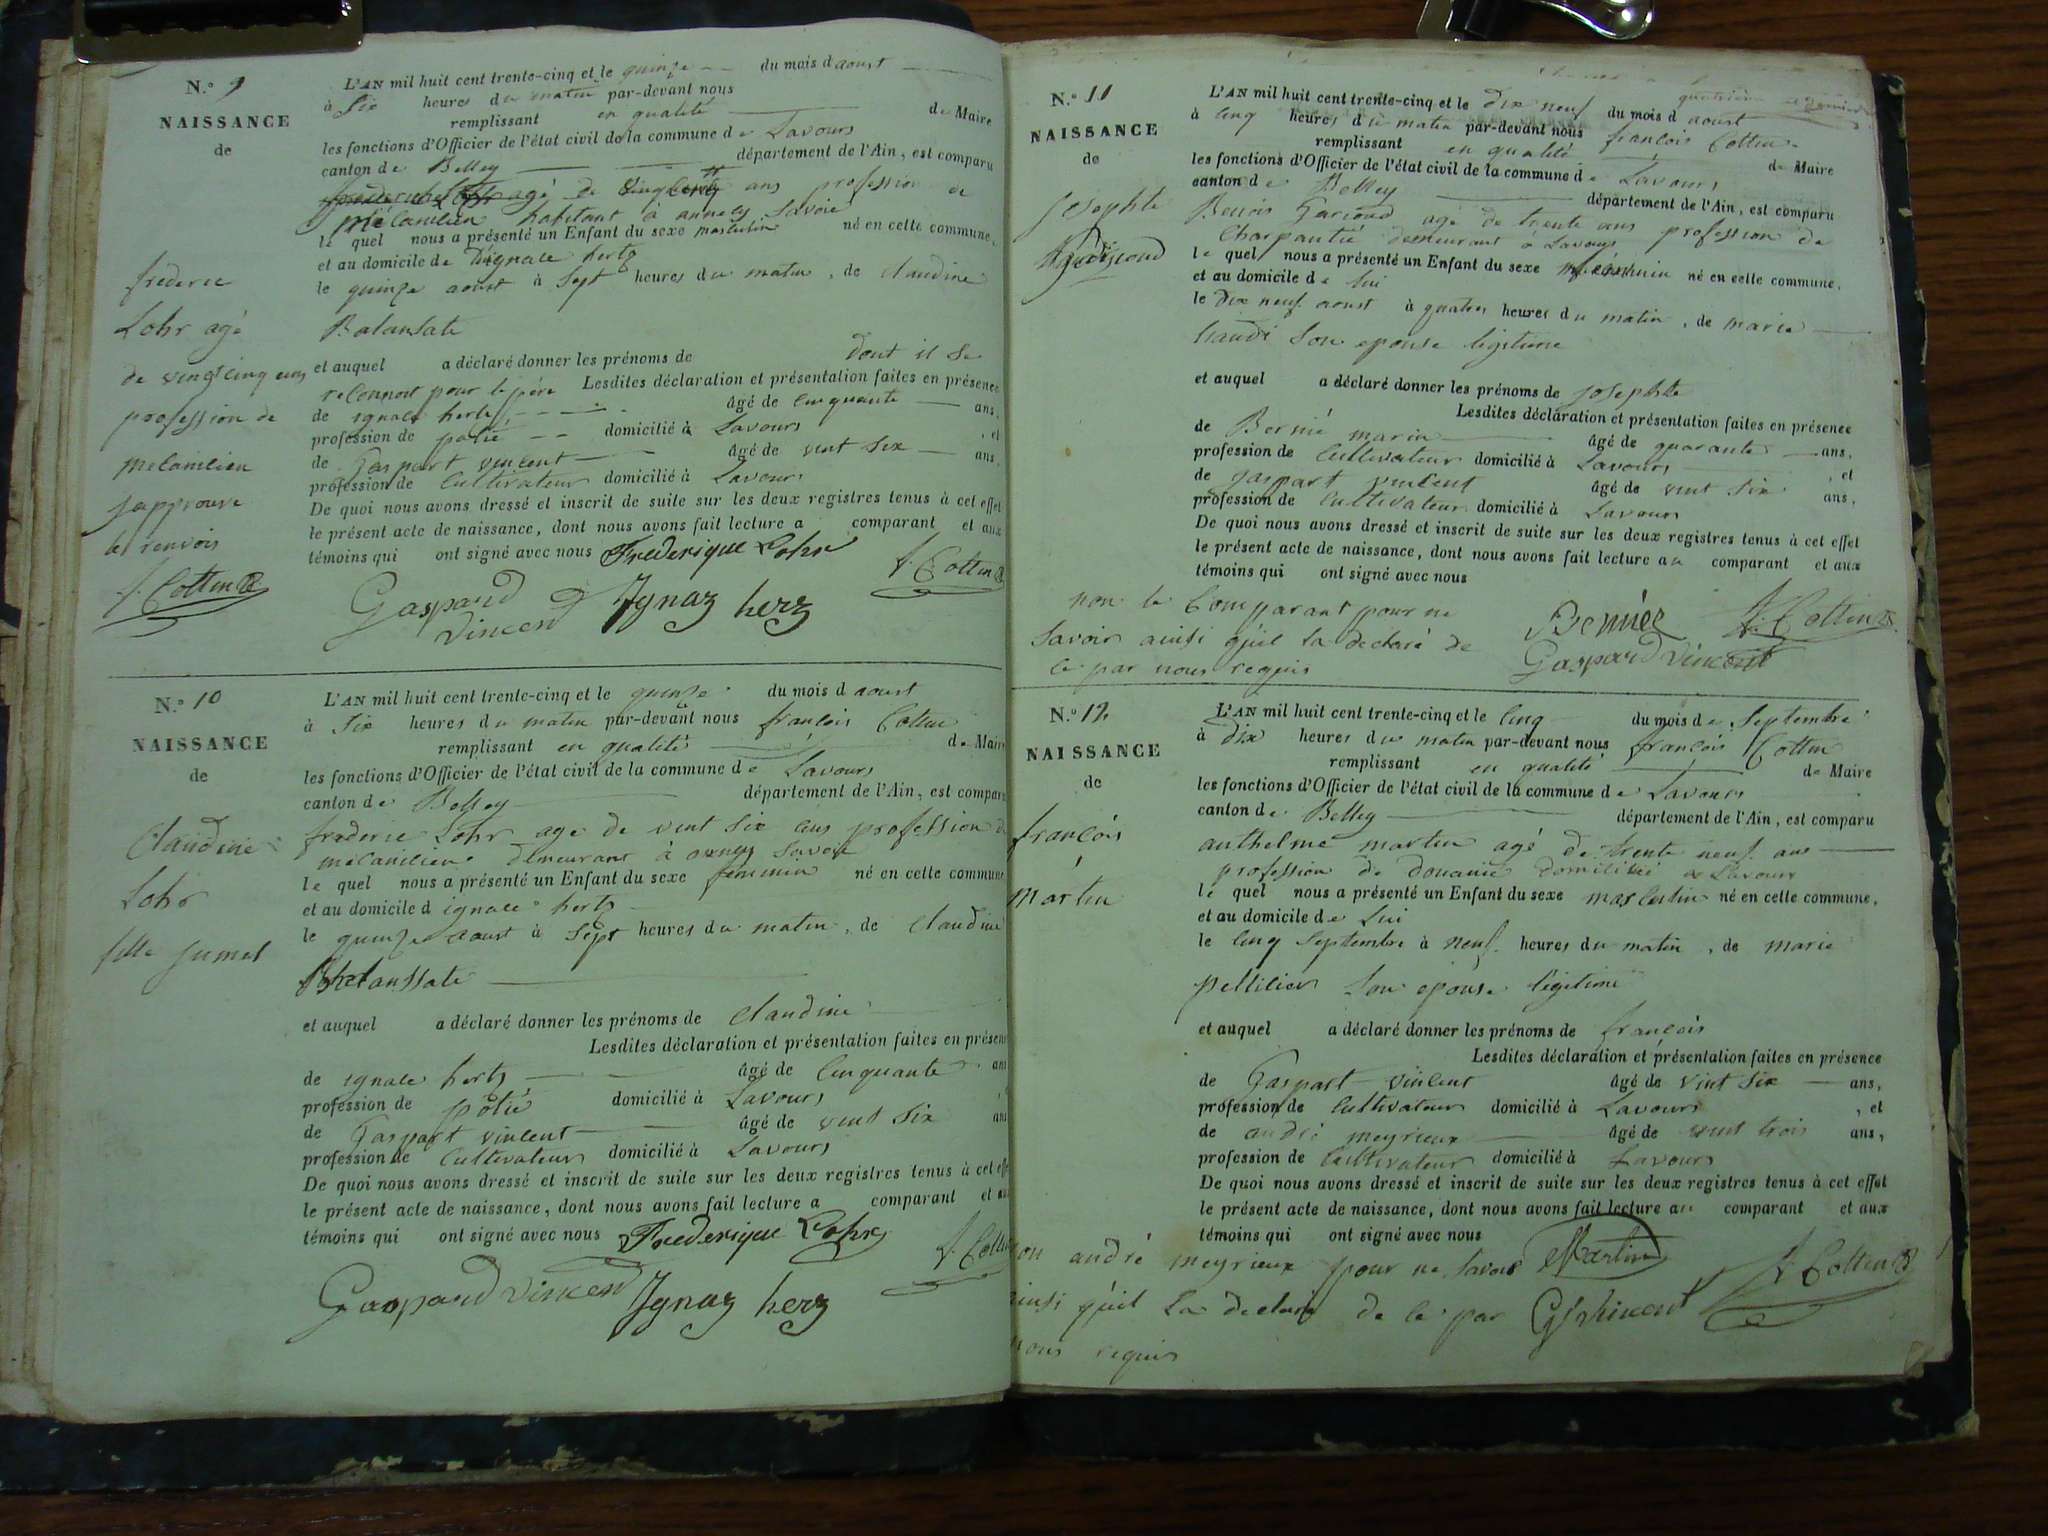 N.º 9
NAISSANCE
de
frederic
Lohr agé
de vingt cinq ans
profession de
mecanicien
japprouve
le renvois
f. Cottin
L'AN mil huit cent trente-cinq et le quinze du mois d aoust
à Six heures du matin par-devant nous
remplissant en qualité de Maire
les fonctions d'Officier de l'état civil de la commune de Lavours
canton de Belley département de l'Ain, est comparu
agé de ans profession de
mécanicien habitant à annecy Savoie
le quel nous a présenté un Enfant du sexe masculin né en cette commune,
et au domicile de D'ignace hertz
le quinze aoust à Sept heures du matin, de claudine
Balansate
et auquel a déclaré donner les prénoms de dont il se
reconnoit pour le père Lesdites déclaration et présentation faites en présence
de ignace hertz âgé de cinquante ans,
profession de potié domicilié à Lavours, et
de Gaspart vincent âgé de vint six ans,
profession de Cultivateur domicilié à Lavours
De quoi nous avons dressé et inscrit de suite sur les deux registres tenus à cet effet
le présent acte de naissance, dont nous avons fait lecture a comparant et aux
témoins qui ont signé avec nous Frederique Lohr
f. Cottin
Gaspard vincend Ignaz herz
N.º 10
NAISSANCE
de
Claudine
Lohr
fille jumel
L'AN mil huit cent trente-cinq et le quinze du mois d aoust
à six heures du matin par-devant nous françois Cottin
remplissant en qualité de Maire
les fonctions d'Officier de l'état civil de la commune de Lavours
canton de Belley département de l'Ain, est comparu
frederic Lohr age de vint six ans profession de
mécanicien demeurant à annecy Savoie
le quel nous a présenté un Enfant du sexe feminin né en cette commune
et au domicile d ignace hertz
le quinze aoust à Sept heures du matin, de Claudine
Balanssate
et auquel a déclaré donner les prénoms de Claudine
Lesdites déclaration et présentation faites en présence
de ignace hertz âgé de Cinquante ans
profession de potié domicilié à Lavours
de Gaspart vincent âgé de vint six ans
profession de Cultivateur domicilié à Lavours
De quoi nous avons dressé et inscrit de suite sur les deux registres tenus à cet effet
le présent acte de naissance, dont nous avons fait lecture a comparant et aux
témoins qui ont signé avec nous Frederique Lohr
f. Cottin
Gaspard vincend Ignaz herz
N.º 11
NAISSANCE
de
josephte
L'AN mil huit cent trente-cinq et le dix neuf du mois d aoust
à Cinq heures du matin par-devant nous françois Cottin
remplissant en qualité de Maire
les fonctions d'Officier de l'état civil de la commune de Lavours
canton de Belley département de l'Ain, est comparu
Benoit agé de trente ans profession de
Charpantié demeurant a Lavours
le quel nous a présenté un Enfant du sexe féminin né en cette commune,
et au domicile de lui
le dix neuf aoust à quatre heures du matin, de marie
son epouse légitime
et auquel a déclaré donner les prénoms de josephte
Lesdites déclaration et présentation faites en présence
de Bernié marin âgé de quarante ans,
profession de Cultivateur domicilié à Lavours, et
de gaspart vincent âgé de vint six ans,
profession de Cultivateur domicilié à Lavours
De quoi nous avons dressé et inscrit de suite sur les deux registres tenus à cet effet
le présent acte de naissance, dont nous avons fait lecture au comparant et aux
témoins qui ont signé avec nous
non le Comparant pour ne
Savoir ainsi qu'il la declaré de
ce par nous requis
Bernier f. Cottin
Gaspard vincent
N.º 12
NAISSANCE
de
françois
Martin
L'AN mil huit cent trente-cinq et le cinq du mois de Septembre
à dix heures du matin par-devant nous françois Cottin
remplissant en qualité de Maire
les fonctions d'Officier de l'état civil de la commune de Lavours
canton de Belley département de l'Ain, est comparu
anthelme martin agé de trente neuf ans
profession de douanié domicilié a Lavours
le quel nous a présenté un Enfant du sexe masculin né en cette commune,
et au domicile de Lui
le cinq Septembre à neuf heures du matin, de marie
pellilier Son epouse légitime
et auquel a déclaré donner les prénoms de françois
Lesdites déclaration et présentation faites en présence
de Gaspart vincent âgé de vint six ans,
profession de Cultivateur domicilié à Lavours, et
de andré meyrieux âgé de vint trois ans,
profession de Cultivateur domicilié à Lavours
De quoi nous avons dressé et inscrit de suite sur les deux registres tenus à cet effet
le présent acte de naissance, dont nous avons fait lecture au comparant et aux
témoins qui ont signé avec nous
non andré meyrieux pour ne Savoir Martin
ainsi qu'il La declaré de ce par
nous requis
f. Cottin